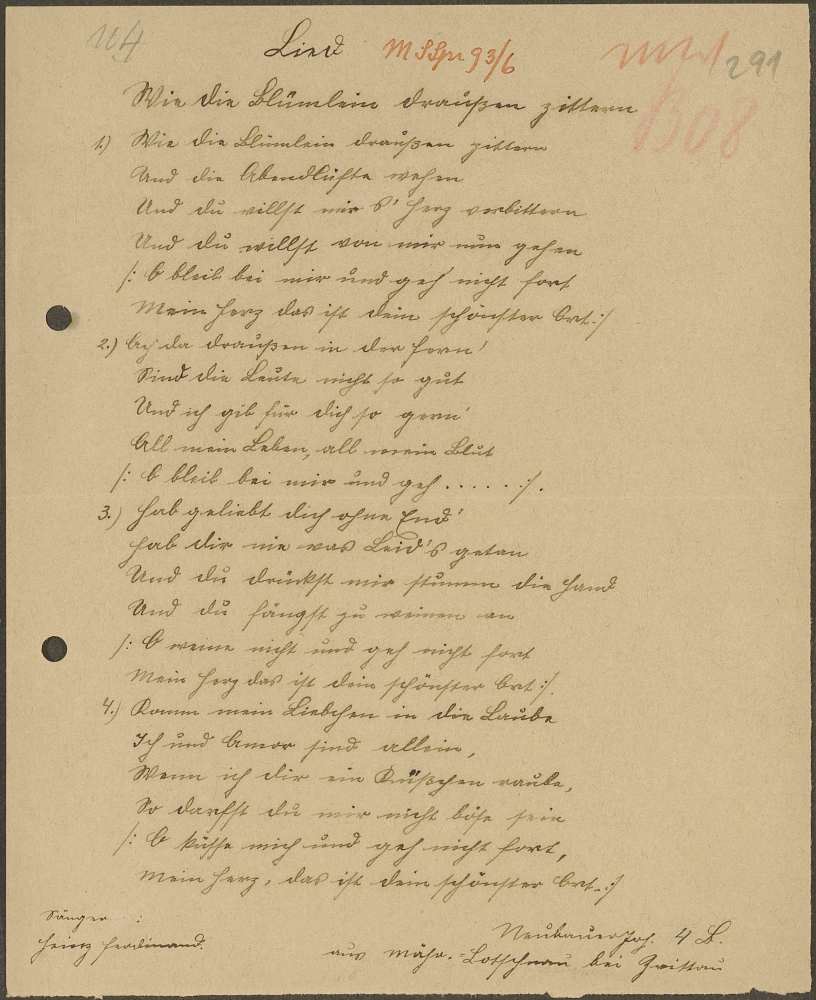 Lied MSSpr 93/6 291
1308
Wie die Blümlein draußen zittern
1.) Wie die Blümlein draußen zittern
Und die Abendlüfte wehen
Und du willst mir 's Herz verbittern
Und du willst von mir nun gehen
/: O bleib bei mir und geh nicht fort
Mein Herz das ist dein schönster Ort :/
2.) Ach da draußen in der Fern'
Sind die Leute nicht so gut
Und ich gib für dich so gern'
All mein Leben, all mein Blut
/: O bleib bei mir und geh . . . . . :/.
3.) Hab geliebt dich ohne End'
Hab dir nie was Leid's getan
Und du drückst mir stumm die Hand
Und du fängst zu weinen an
/: O weine nicht und geh nicht fort
Mein Herz das ist dein schönster Ort :/.
4.) Komm mein Liebchen in die Laube
Ich und Amor sind allein,
Wenn ich dir ein Küßchen raube,
So darfst du mir nicht böse sein
/: O küsse mich und geh nicht fort,
Mein Herz, das ist dein schönster Ort. :/
Sänger :
Heinz Ferdinand.
Neubauer Joh. 4 B.
aus Mähr.-Lotschnau bei Zwittau